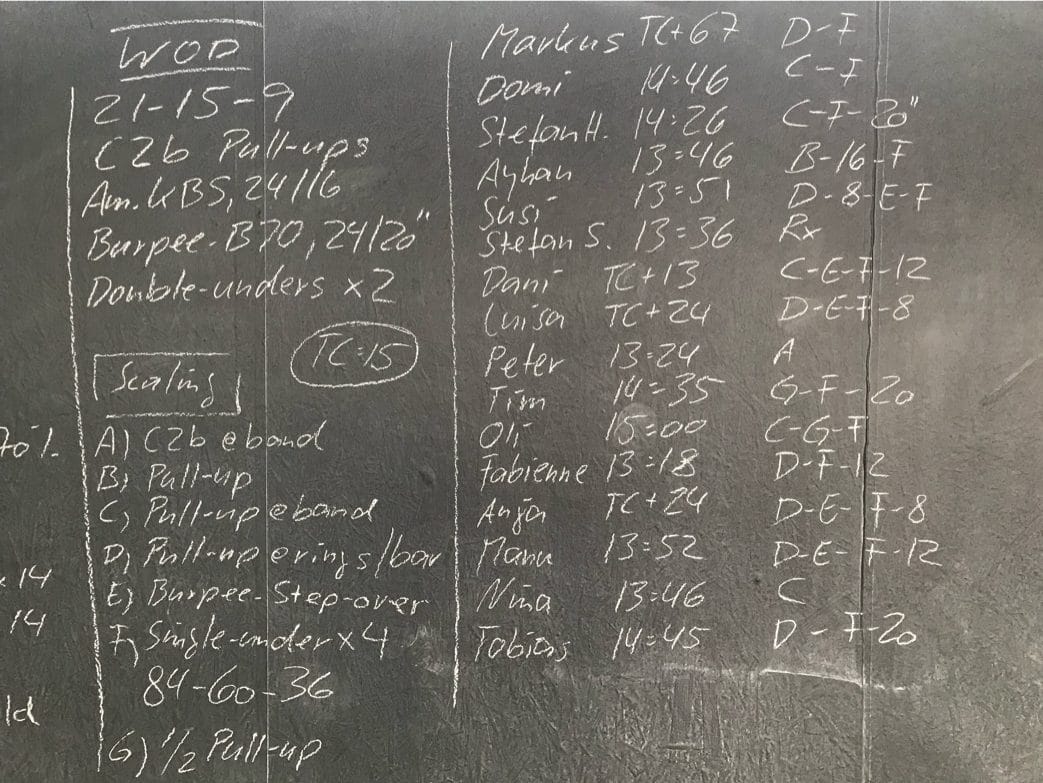 WOD
21-15-9
C2b Pull-ups
Am. KBS, 24/16
Burpee-BJO, 24/20"
Double-unders x2
TC:15
Scaling
A) C2b e band
B) Pull-up
C) Pull-up e band
D) Pull-up e rings/bar
E) Burpee-Step-over
F) Single-under x 4
84-60-36
G) 1/2 Pull-up
70%
14
14
ld
Markus TC+67 D-F
Domi 14:46 C-F
Stefan H. 14:26 C-F-20"
Ayhan 13:46 B-16-F
Susi 13:51 D-8-E-F
Stefan S. 13:36 Rx
Dani TC+13 C-E-F-12
Luisa TC+24 D-E-F-8
Peter 13:24 A
Tim 14:35 G-F-20
Oli 15:00 C-G-F
Fabienne 13:18 D-F-12
Anja TC+24 D-E-F-8
Manu 13:52 D-E-F-12
Nina 13:46 C
Tobias 14:45 D-F-20